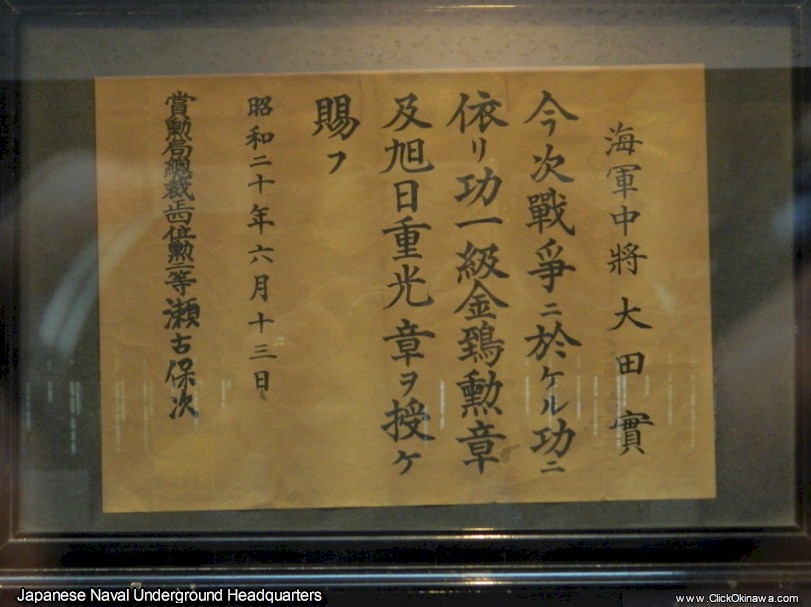 海軍中將 大田 實
今次戰爭ニ於ケル功ニ
依リ功一級金鵄勲章
及旭日重光章ヲ授ケ
賜フ
昭和二十年六月十三日
賞勲局總裁正四位勲二等瀬古保次
Japanese Naval Underground Headquarters
www.ClickOkinawa.com